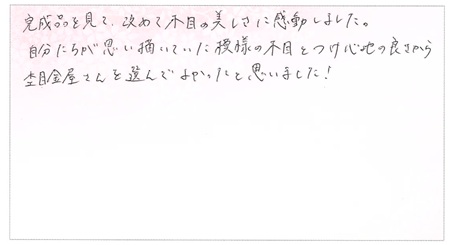 完成品を見て、改めて木目の美しさに感動しました。
自分たちが思い描いていた模様の木目とつけ心地の良さから
杢目金屋さんを選んでよかったと思いました!